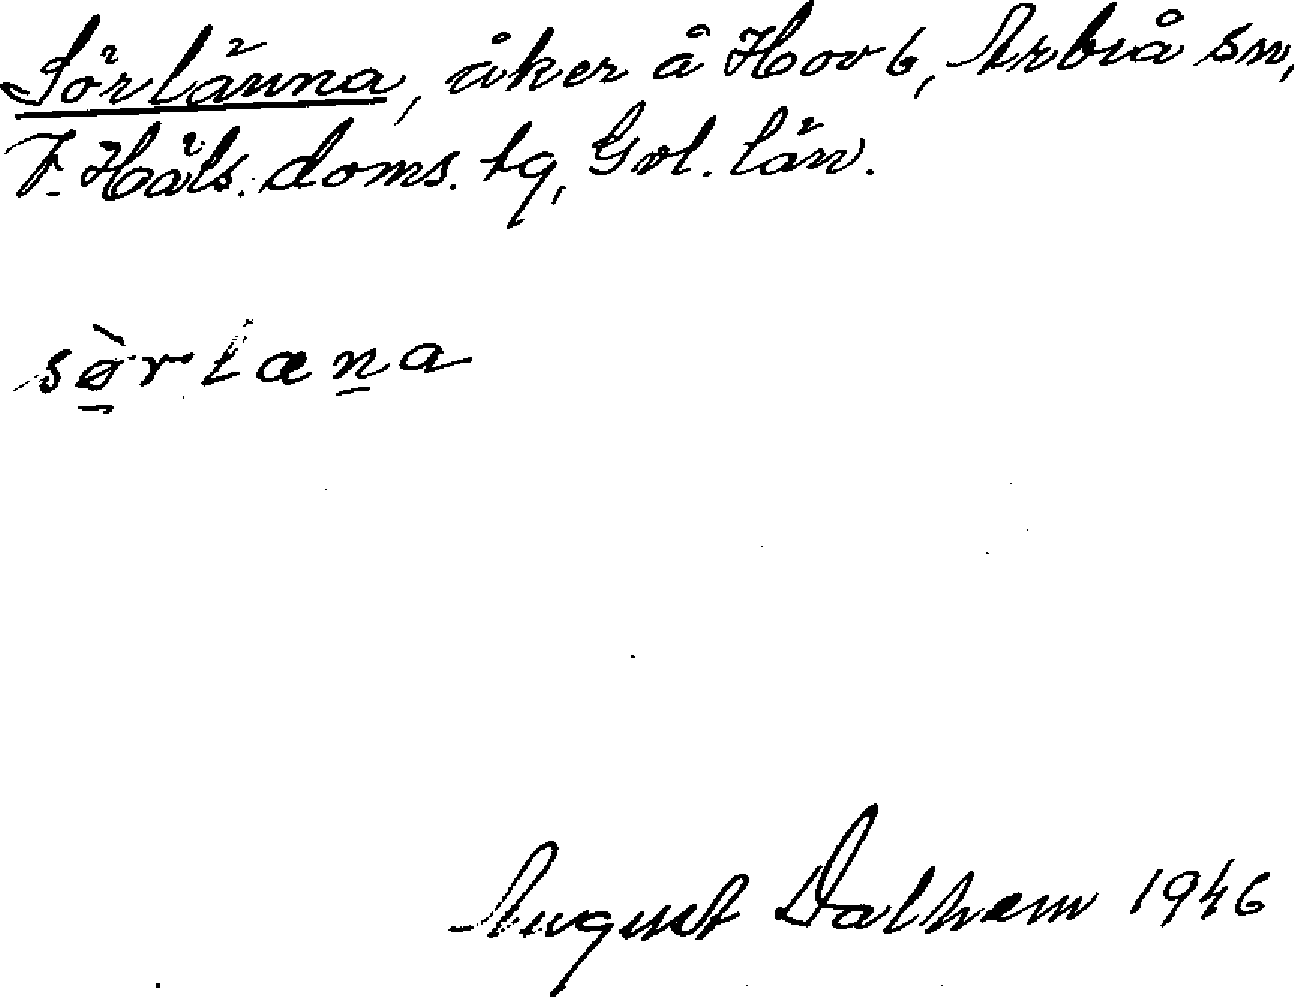 Sörlänna, åker å Hov 6, Arbrå sn,
V. Häls. doms. tg, Gvl. län.
sø̀rlæna
August Dalhem 1946